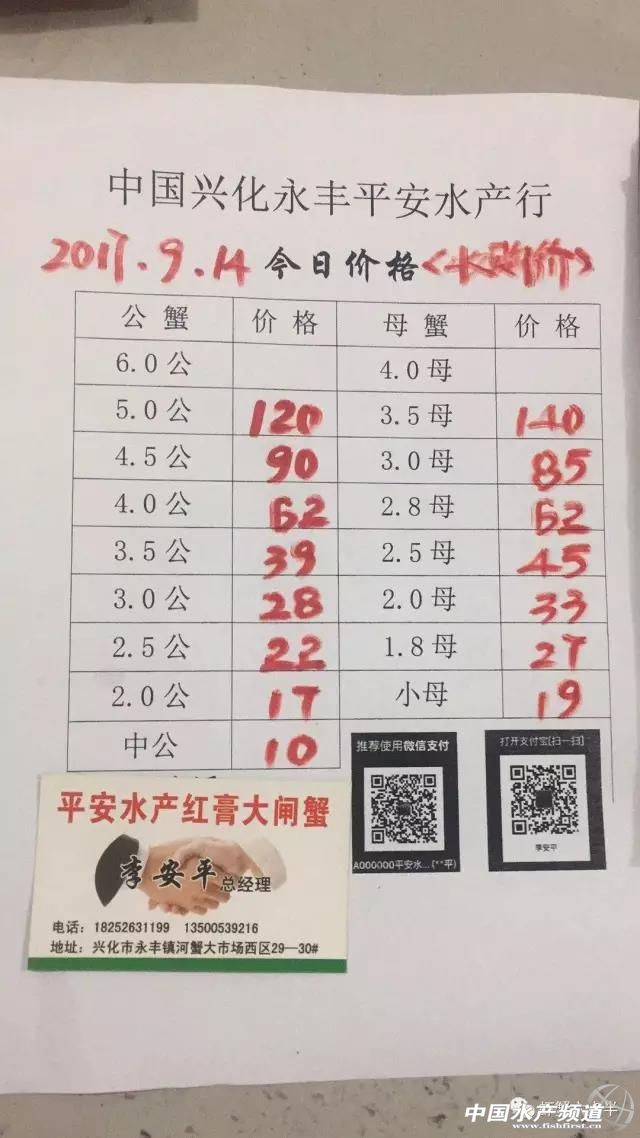 中国兴化永丰平安水产行
2017.9.14 今日价格
公蟹 价格 母蟹 价格
6.0公 4.0母
5.0公 120 3.5母 140
4.5公 90 3.0母 85
4.0公 62 2.8母 62
3.5公 39 2.5母 45
3.0公 28 2.0母 33
2.5公 22 1.8母 27
2.0公 17 小母 19
中公 10
推荐使用微信支付
A000000平安水...(**平)
打开支付宝[扫一扫]
李安平
平安水产红膏大闸蟹
李安平 总经理
电话：18252631199 13500539216
地址：兴化市永丰镇河蟹大市场西区29—30#
中国水产频道
www.fishfirst.cn